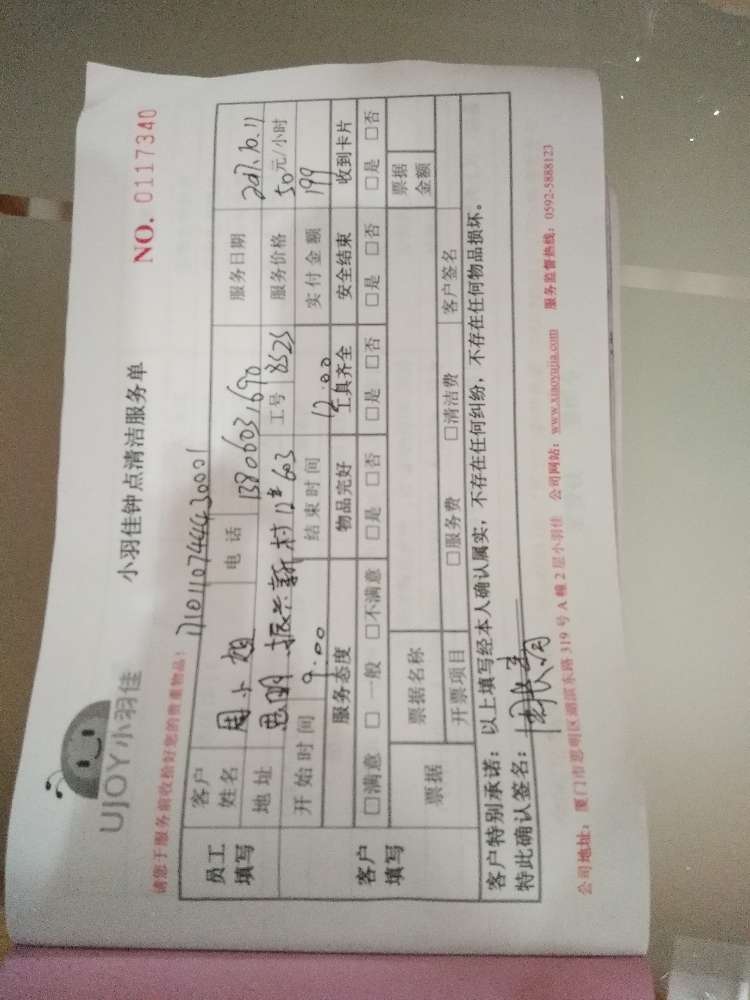 UJOY小羽佳
小羽佳钟点清洁服务单
NO. 0117340
请您于服务前收捡好您的贵重物品!
17101107444430001
员工填写
客户姓名 周小姐 电话 13806031690 服务日期 2017.10.11
地址 思明 振兴新村 12#603 工号 8525 服务价格 50元/小时
开始时间 9:00 结束时间 12:00 实付金额 199
客户填写
服务态度 物品完好 工具齐全 安全结束 收到卡片
□满意 □一般 □不满意 □是 □否 □是 □否 □是 □否 □是 □否
票据 票据名称 票据金额
开票项目 □服务费 □清洁费 客户签名
客户特别承诺:以上填写经本人确认属实,不存在任何纠纷,不存在任何物品损坏。
特此确认签名:
公司地址:厦门市思明区湖滨东路319号A幢2层小羽佳 公司网站:www.xiaoyujia.com 服务监督热线:0592-5888123